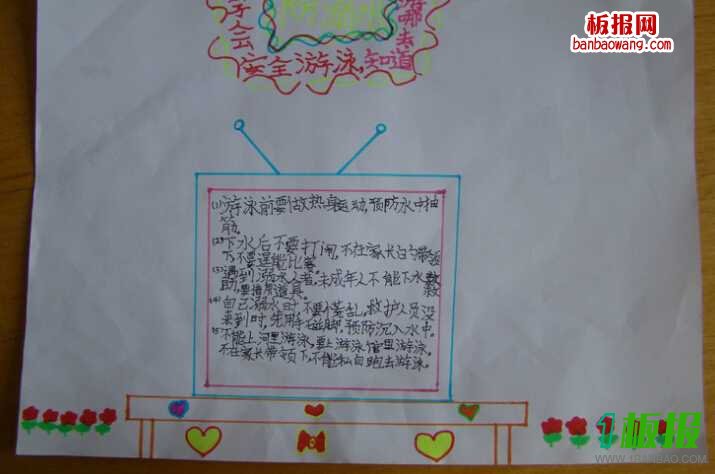 板报网
banbaowang.com
学会
防溺水
哪去
安全游泳,知道
(1)游泳前要做热身运动,预防水中抽
筋。
(2)下水后不要打闹,不在家长的带领
下,不要逞能比赛。
(3)遇到溺水者,未成年人不能下水救
助,要
(4)自己溺水时,不要慌乱,救护人员没
来到时,先用手 脚,预防沉入水中。
(5)不能上河里游泳,要上游泳馆里游泳。
不在家长带领下,不能私自跑去游泳。
1板报
WWW.1BANBAO.COM